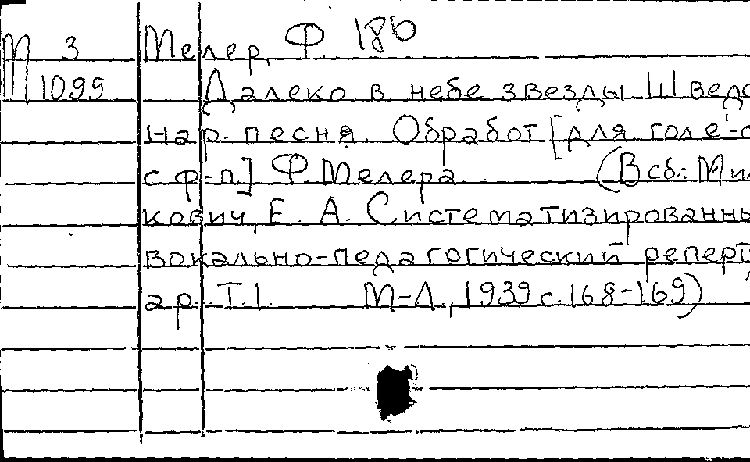 М 3 Мелер, Ф. 186
М 1099 Далеко в небе звезды Шведс
нар. песня. Обработ [для голе-с
с ф-п] Ф. Мелера (В сб.: Миль
кович, Е. А. Систематизированны
вокально-педагогический реперт
ар. Т.1. М-Л., 1939 с.168-169)